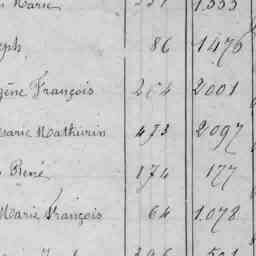 Marie 1.333
eph 86 1476
gène François 204 2001
esarie Mathurin 473 2.097
René 174 177
Marie François 64 1.078